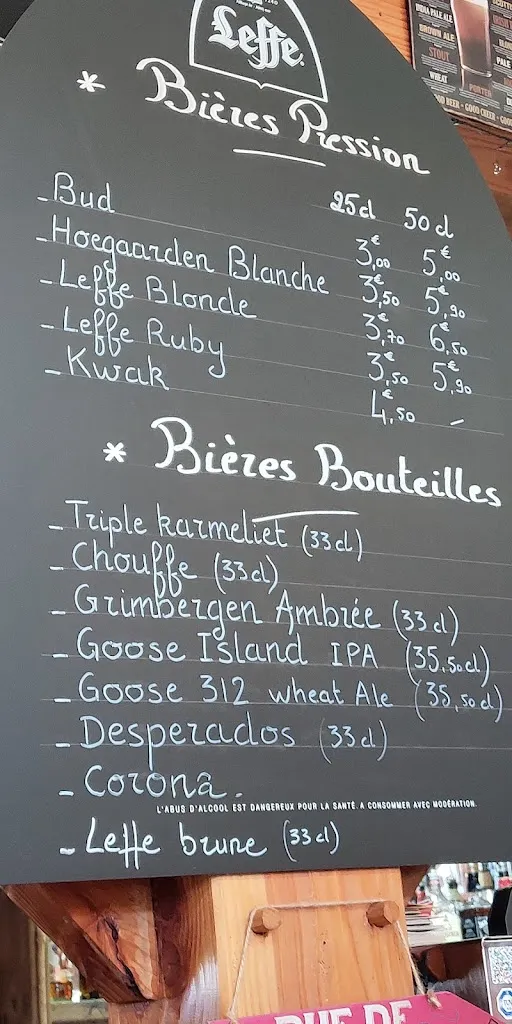 Leffe
* Bières Pression
25cl 50cl
- Bud 3€,00 5€,00
- Hoegaarden Blanche 3€,50 5€,90
- Leffe Blonde 3€,70 6€,50
- Leffe Ruby 3€,50 5€,90
- Kwak 4€,50 -
* Bières Bouteilles
- Triple karmeliet (33cl)
- Chouffe (33cl)
- Grimbergen Ambrée (33cl)
- Goose Island IPA (35,50cl)
- Goose 312 wheat Ale (35,50cl)
- Desperados (33cl)
- Corona.
L'ABUS D'ALCOOL EST DANGEREUX POUR LA SANTÉ. A CONSOMMER AVEC MODÉRATION.
- Leffe brune (33cl)
INDIA PALE ALE
BROWN ALE
STOUT
WHEAT
PORTER
PALE
GOOD BEER - GOOD CHEER -
RUE DE